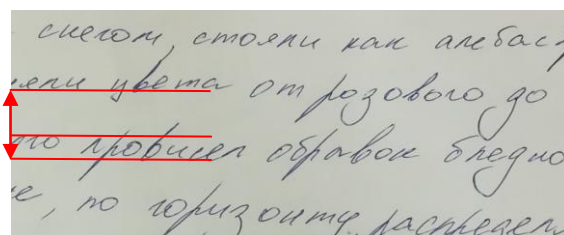 снегом, стояли как алебаст
яли цвета от розового до
его провисел обрывок бледно
не, по горизонту распредел